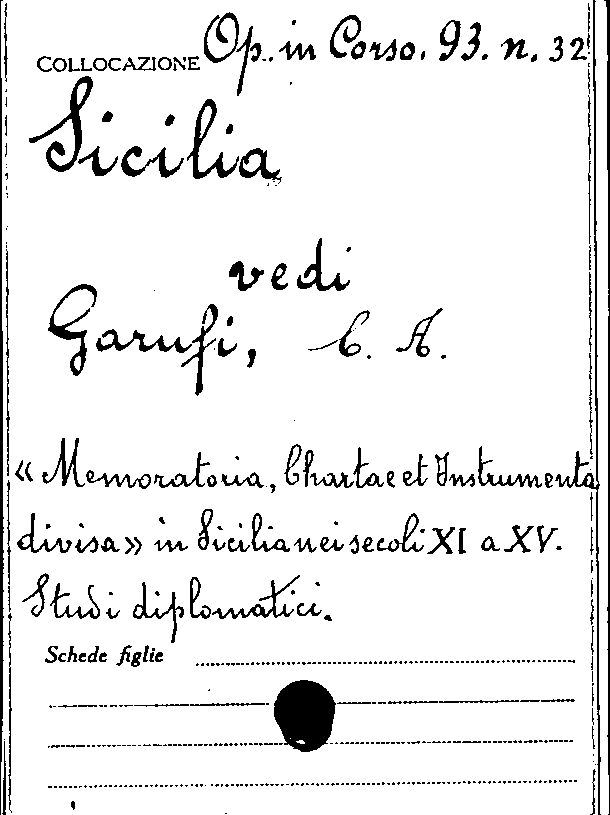 COLLOCAZIONE Op. in Corso. 93. n. 32
Sicilia
vedi
Garufi, C. A.
« Memoratoria, Chartae et Instrumenta
divisa » in Sicilia nei secoli XI a XV.
Studi diplomatici.
Schede figlie